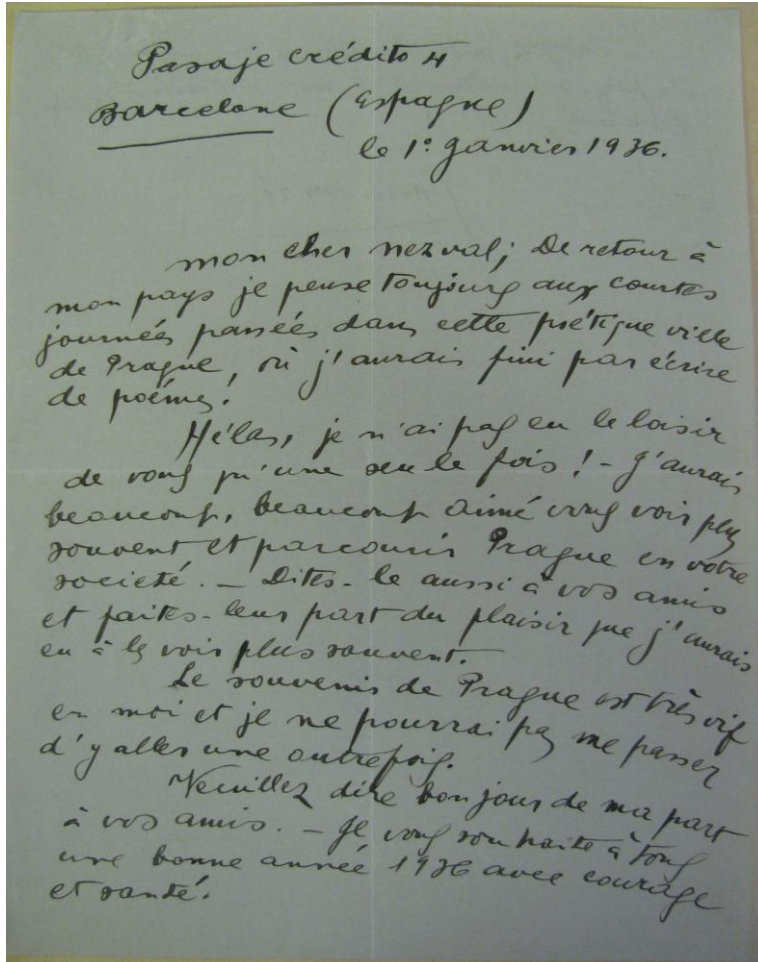 Pasaje crédito 4
Barcelone (Espagne)
le 1º Janvier 1936.
mon cher nezval; De retour à
mon pays je pense toujours aux courtes
journées passées dans cette poétique ville
de Prague, où j'aurais fini par écrire
de poémes.
Hélas, je n'ai pas eu le loisir
de vous qu'une seule fois! - J'aurais
beaucoup, beaucoup aimé vous voir plus
souvent et parcourir Prague en votre
societé. - Dites-le aussi à vos amis
et faites-leur part du plaisir que j'aurais
eu à les voir plus souvent.
Le souvenir de Prague est très vif
en moi et je ne pourrai pas me passer
d'y aller une autrefois.
Veuillez dire bonjour de ma part
à vos amis. - Je vous souhaite à tous
une bonne année 1936 avec courage
et santé.